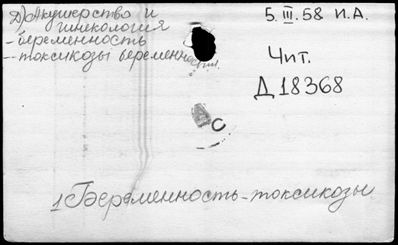 Д) Акушерство и
гинекология
- беременность
- токсикозы беременности.
5. III. 58 И.А.
Чит.
Д 18368
С
1 Беременность - токсикозы